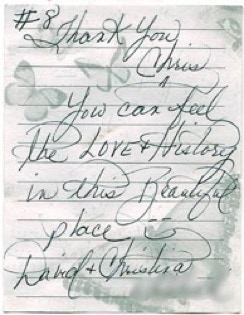 #8
Thank You
Chris
You can feel
the LOVE & History
in this Beautiful
place
David & Christina